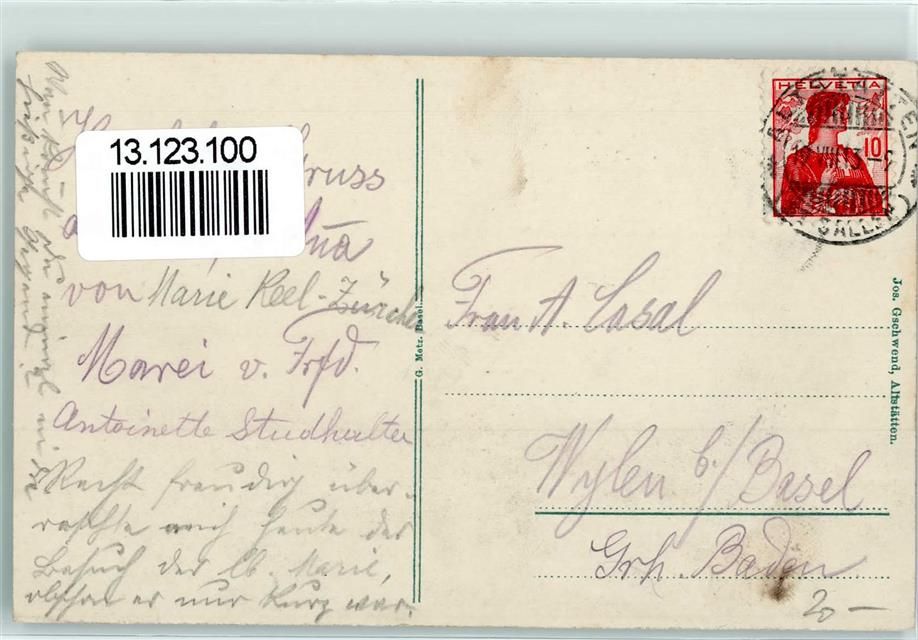 13.123.100
Gruss
von Marie Keel-Zürcher
Marei v. Frfd.
Antoinette Studhalter
Recht freudig über-
raschte mich heute der
Besuch der lb. Marie,
obschon er nur kurz war.
G. Metz, Basel.
HELVETIA
10
Frau A. Casal
Wylen b./Basel
Grh. Baden
20 —
Jos. Gschwend, Altstätten.